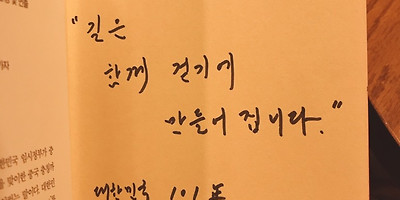 "길은
함께 걷기에
만들어 집니다."
대한민국 101年
한민국 임시정부가 중
을 맞이한 중국 충칭과